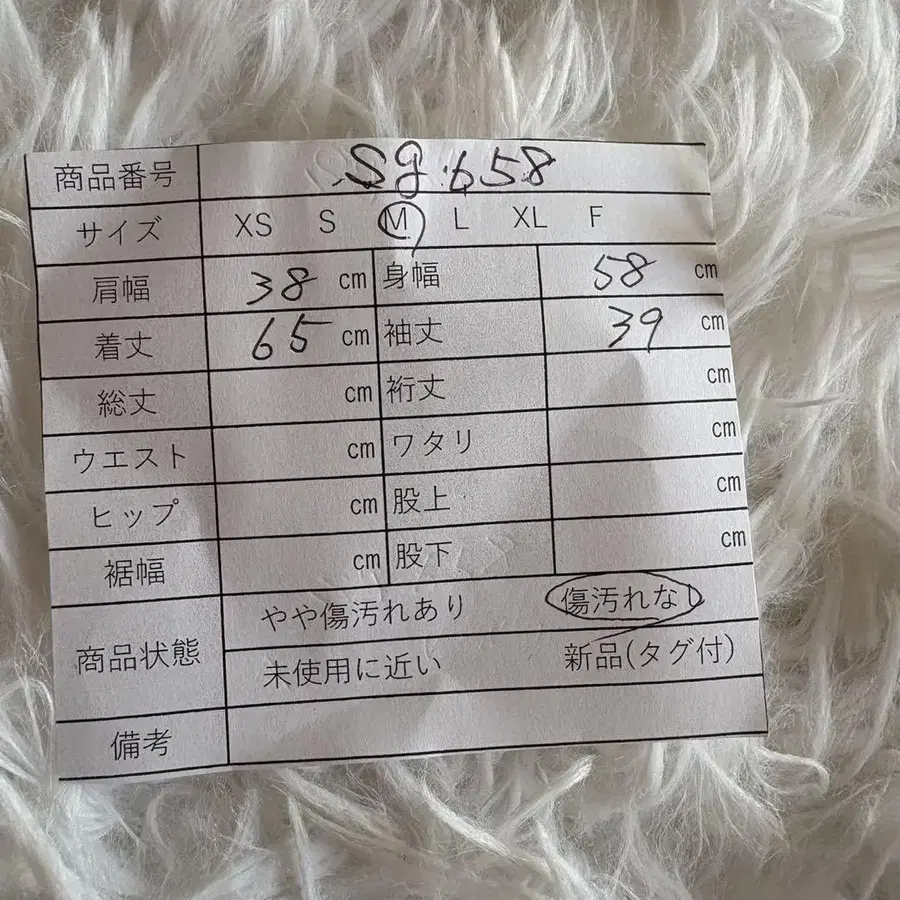 商品番号 sg:658
サイズ XS S M L XL F
肩幅 38 cm 身幅 58 cm
着丈 65 cm 袖丈 39 cm
総丈 cm 裄丈 cm
ウエスト cm ワタリ cm
ヒップ cm 股上 cm
裾幅 cm 股下 cm
商品状態 やや傷汚れあり 傷汚れなし
未使用に近い 新品(タグ付)
備考